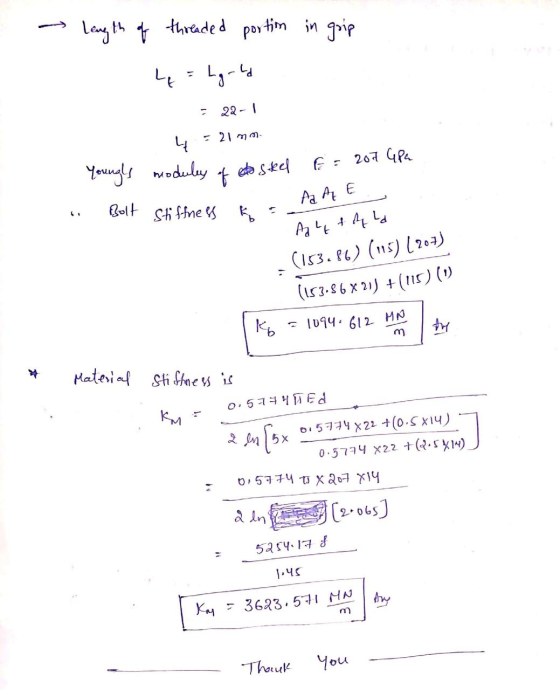 → Length of threaded portion in grip
Lt = Lg - Ld
= 22-1
Lt = 21 mm.
Young's modulus of steel E = 207 GPa
∴ Bolt stiffness Kb = Ad At E / (Ad Lt + At Ld)
= (153.86) (115) (207) / ((153.86 x 21) + (115) (1))
Kb = 1094.612 MN/m Ans
* Material stiffness is
KM = 0.5774 π E d / (2 ln [5x (0.5774 x 22 + (0.5 x 14)) / (0.5774 x 22 + (2.5 x 14))])
= 0.5774 π x 207 x 14 / (2 ln [2.065])
= 5254.17 / 1.45
KM = 3623.571 MN/m Ans
Thank You